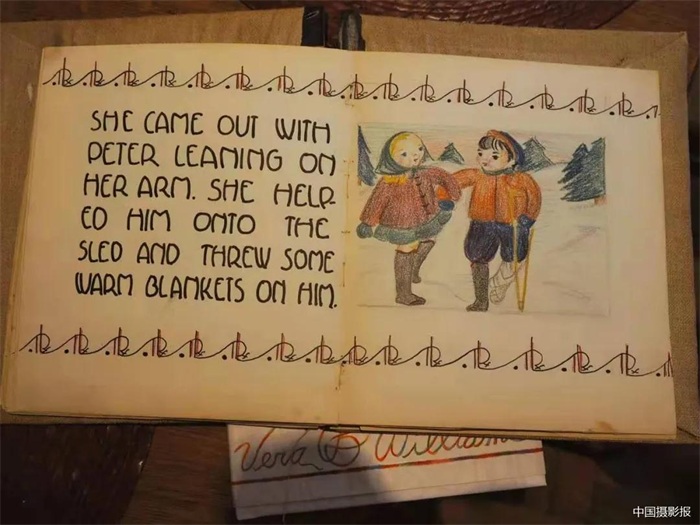 SHE CAME OUT WITH
PETER LEANING ON
HER ARM. SHE HELP-
ED HIM ONTO THE
SLED AND THREW SOME
WARM BLANKETS ON HIM.
Vera B Williams
中国摄影报